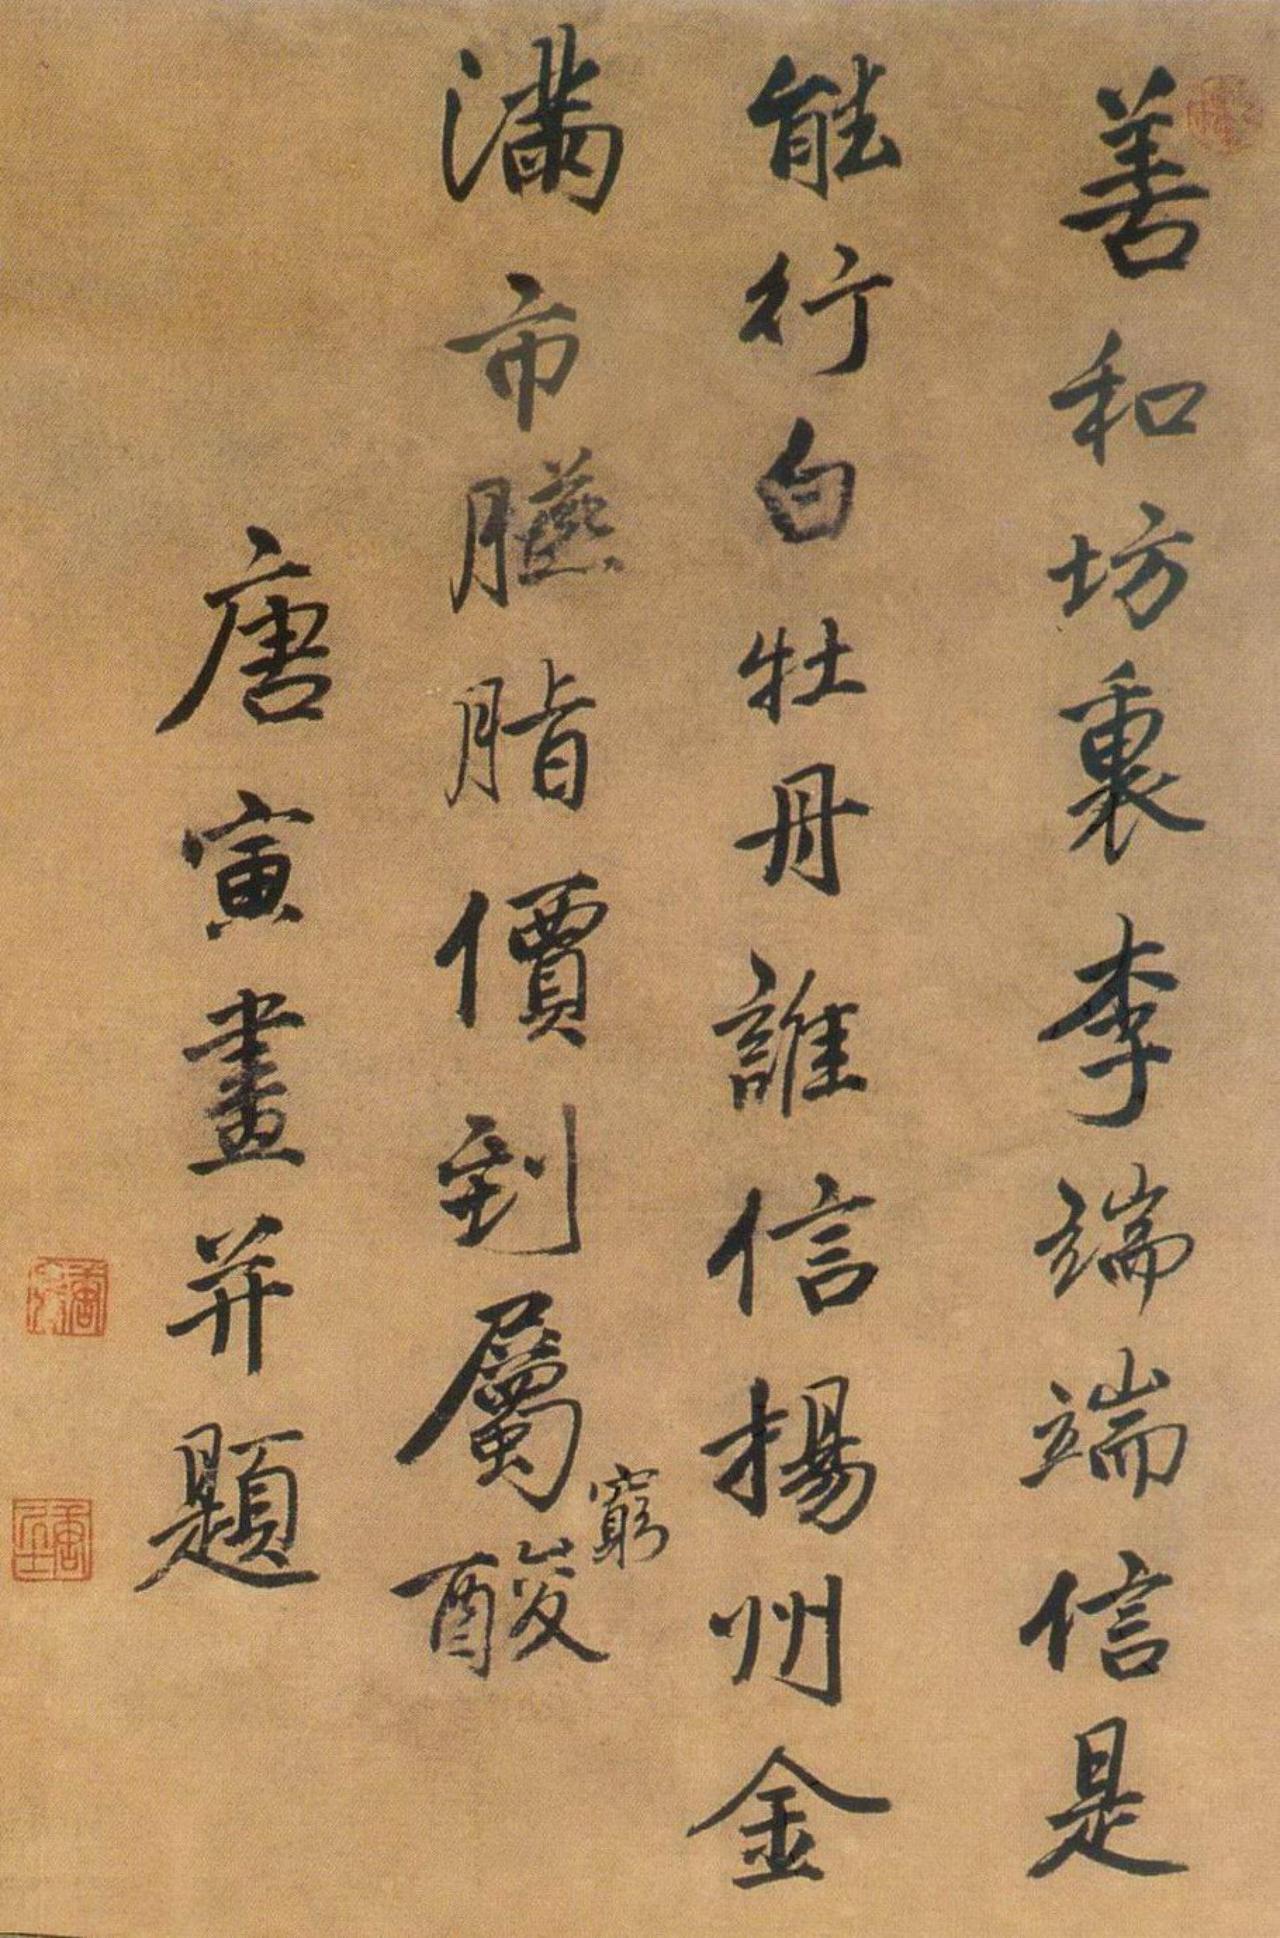 善和坊裏李端端信是
能行白牡丹誰信揚州金
滿市臙脂價到屬酸
窮
唐寅畫并題